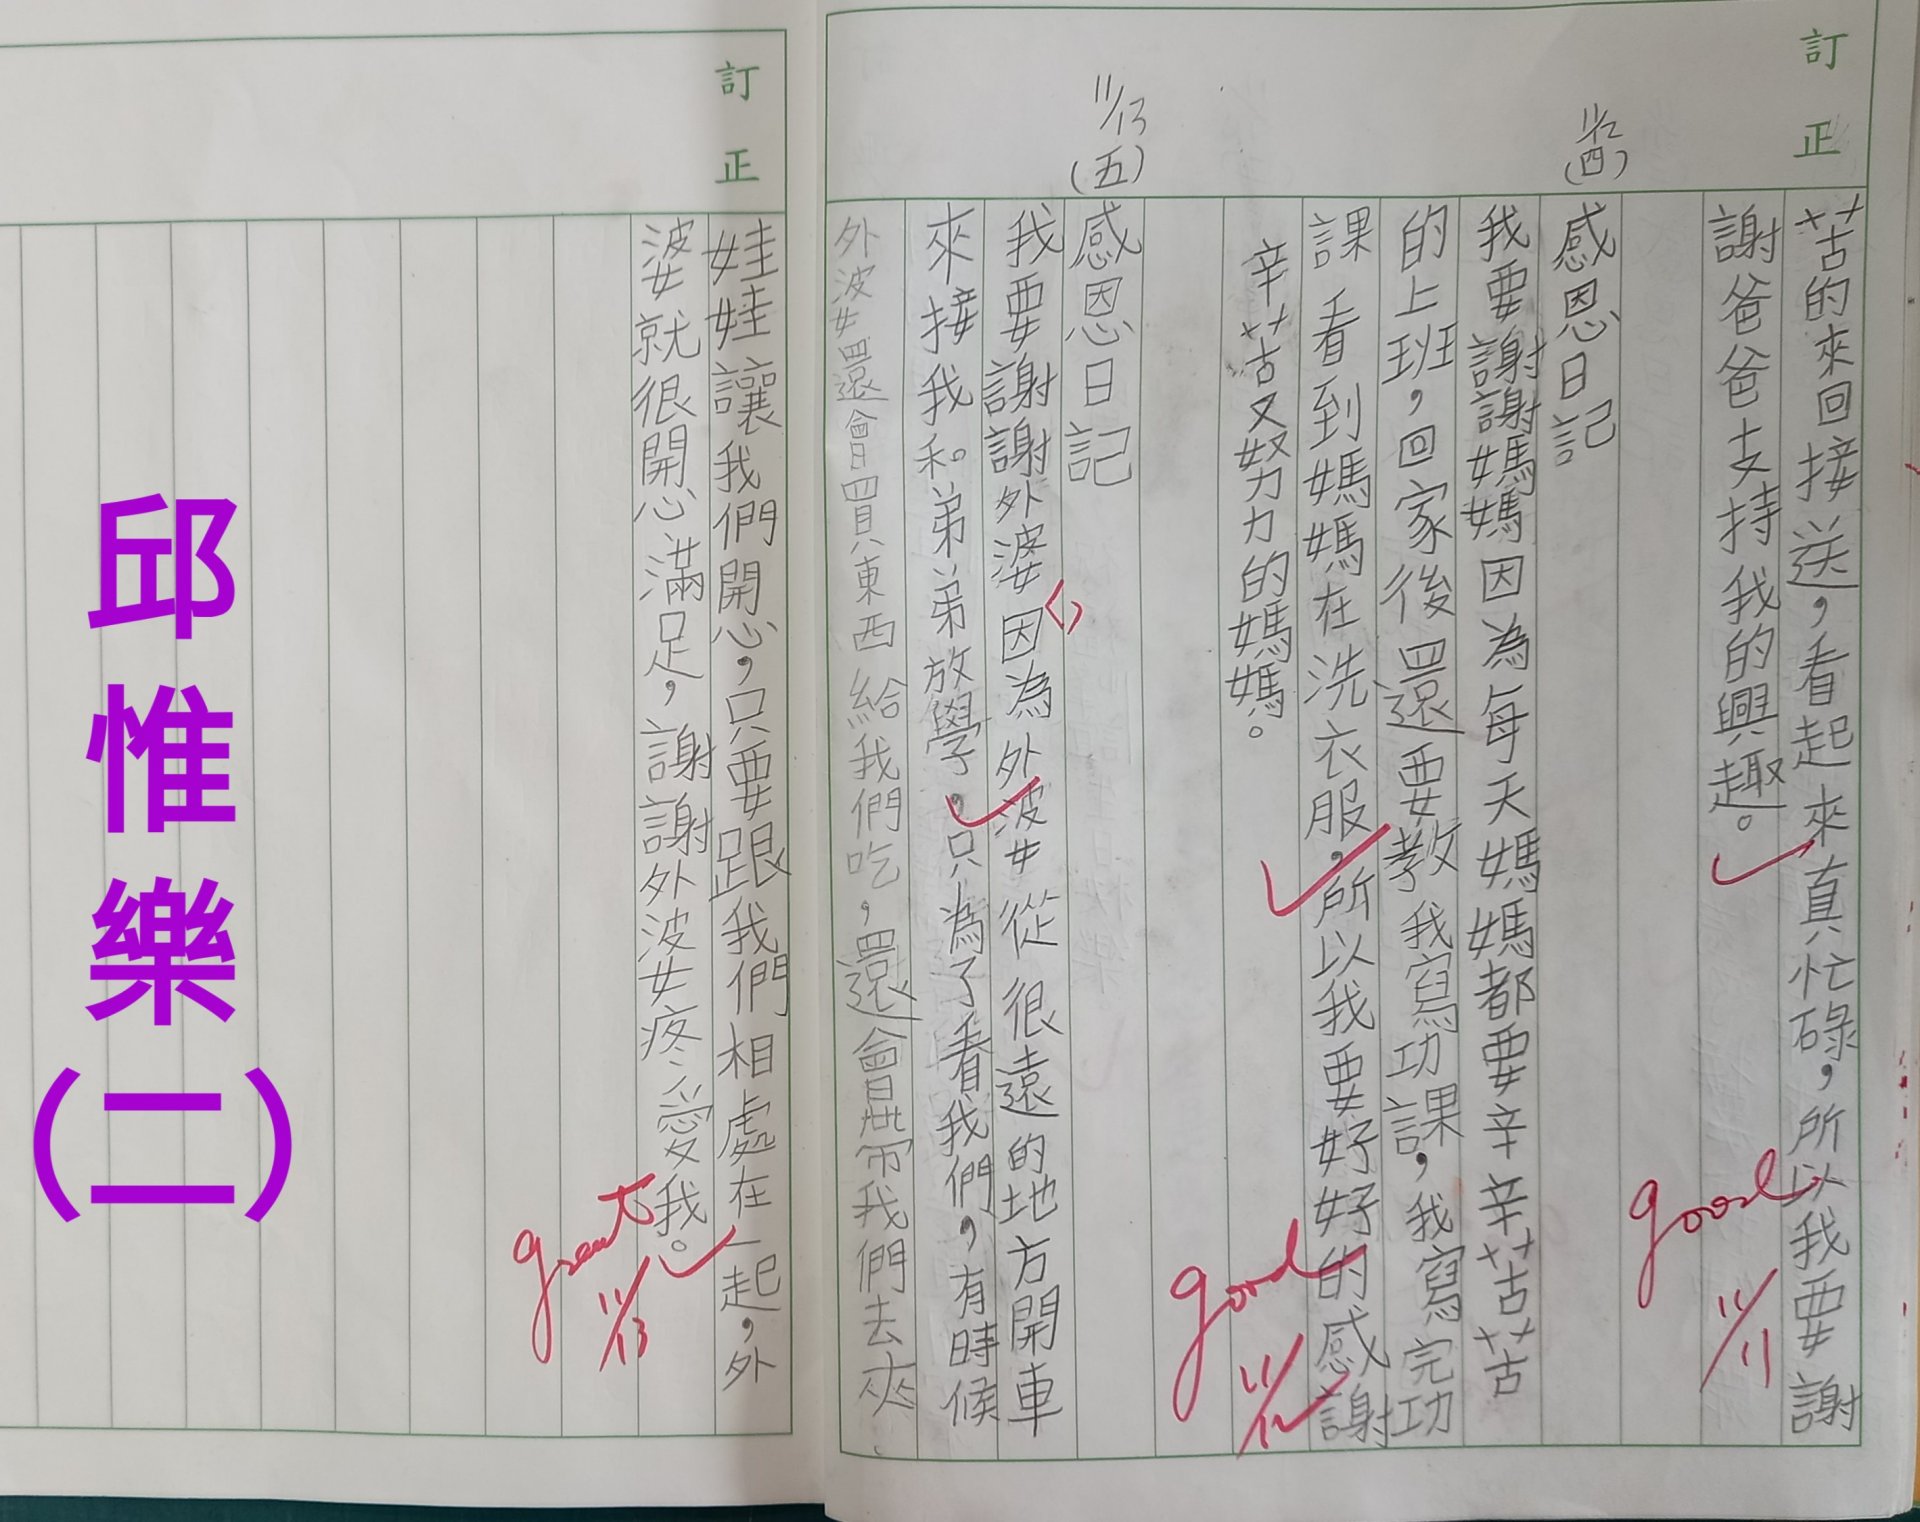 訂正
苦的來回接送，看起來真忙碌，所以我要謝
謝爸爸支持我的興趣。
good
11/11
11/12
(四)
感恩日記
我要謝謝媽媽因為每天媽媽都要辛辛苦苦
的上班，回家後還要教我寫功課，我寫完功
課看到媽媽在洗衣服，所以我要好好的感謝
辛苦又努力的媽媽。
good
11/12
11/13
(五)
感恩日記
我要謝謝外婆因為外婆從很遠的地方開車
來接我和弟弟放學，只為了看我們，有時候
外婆還會買東西給我們吃，還會帶我們去夾
訂正
娃娃讓我們開心，只要跟我們相處在一起，外
婆就很開心滿足，謝謝外婆疼愛我。
great
11/13
邱惟樂(二)